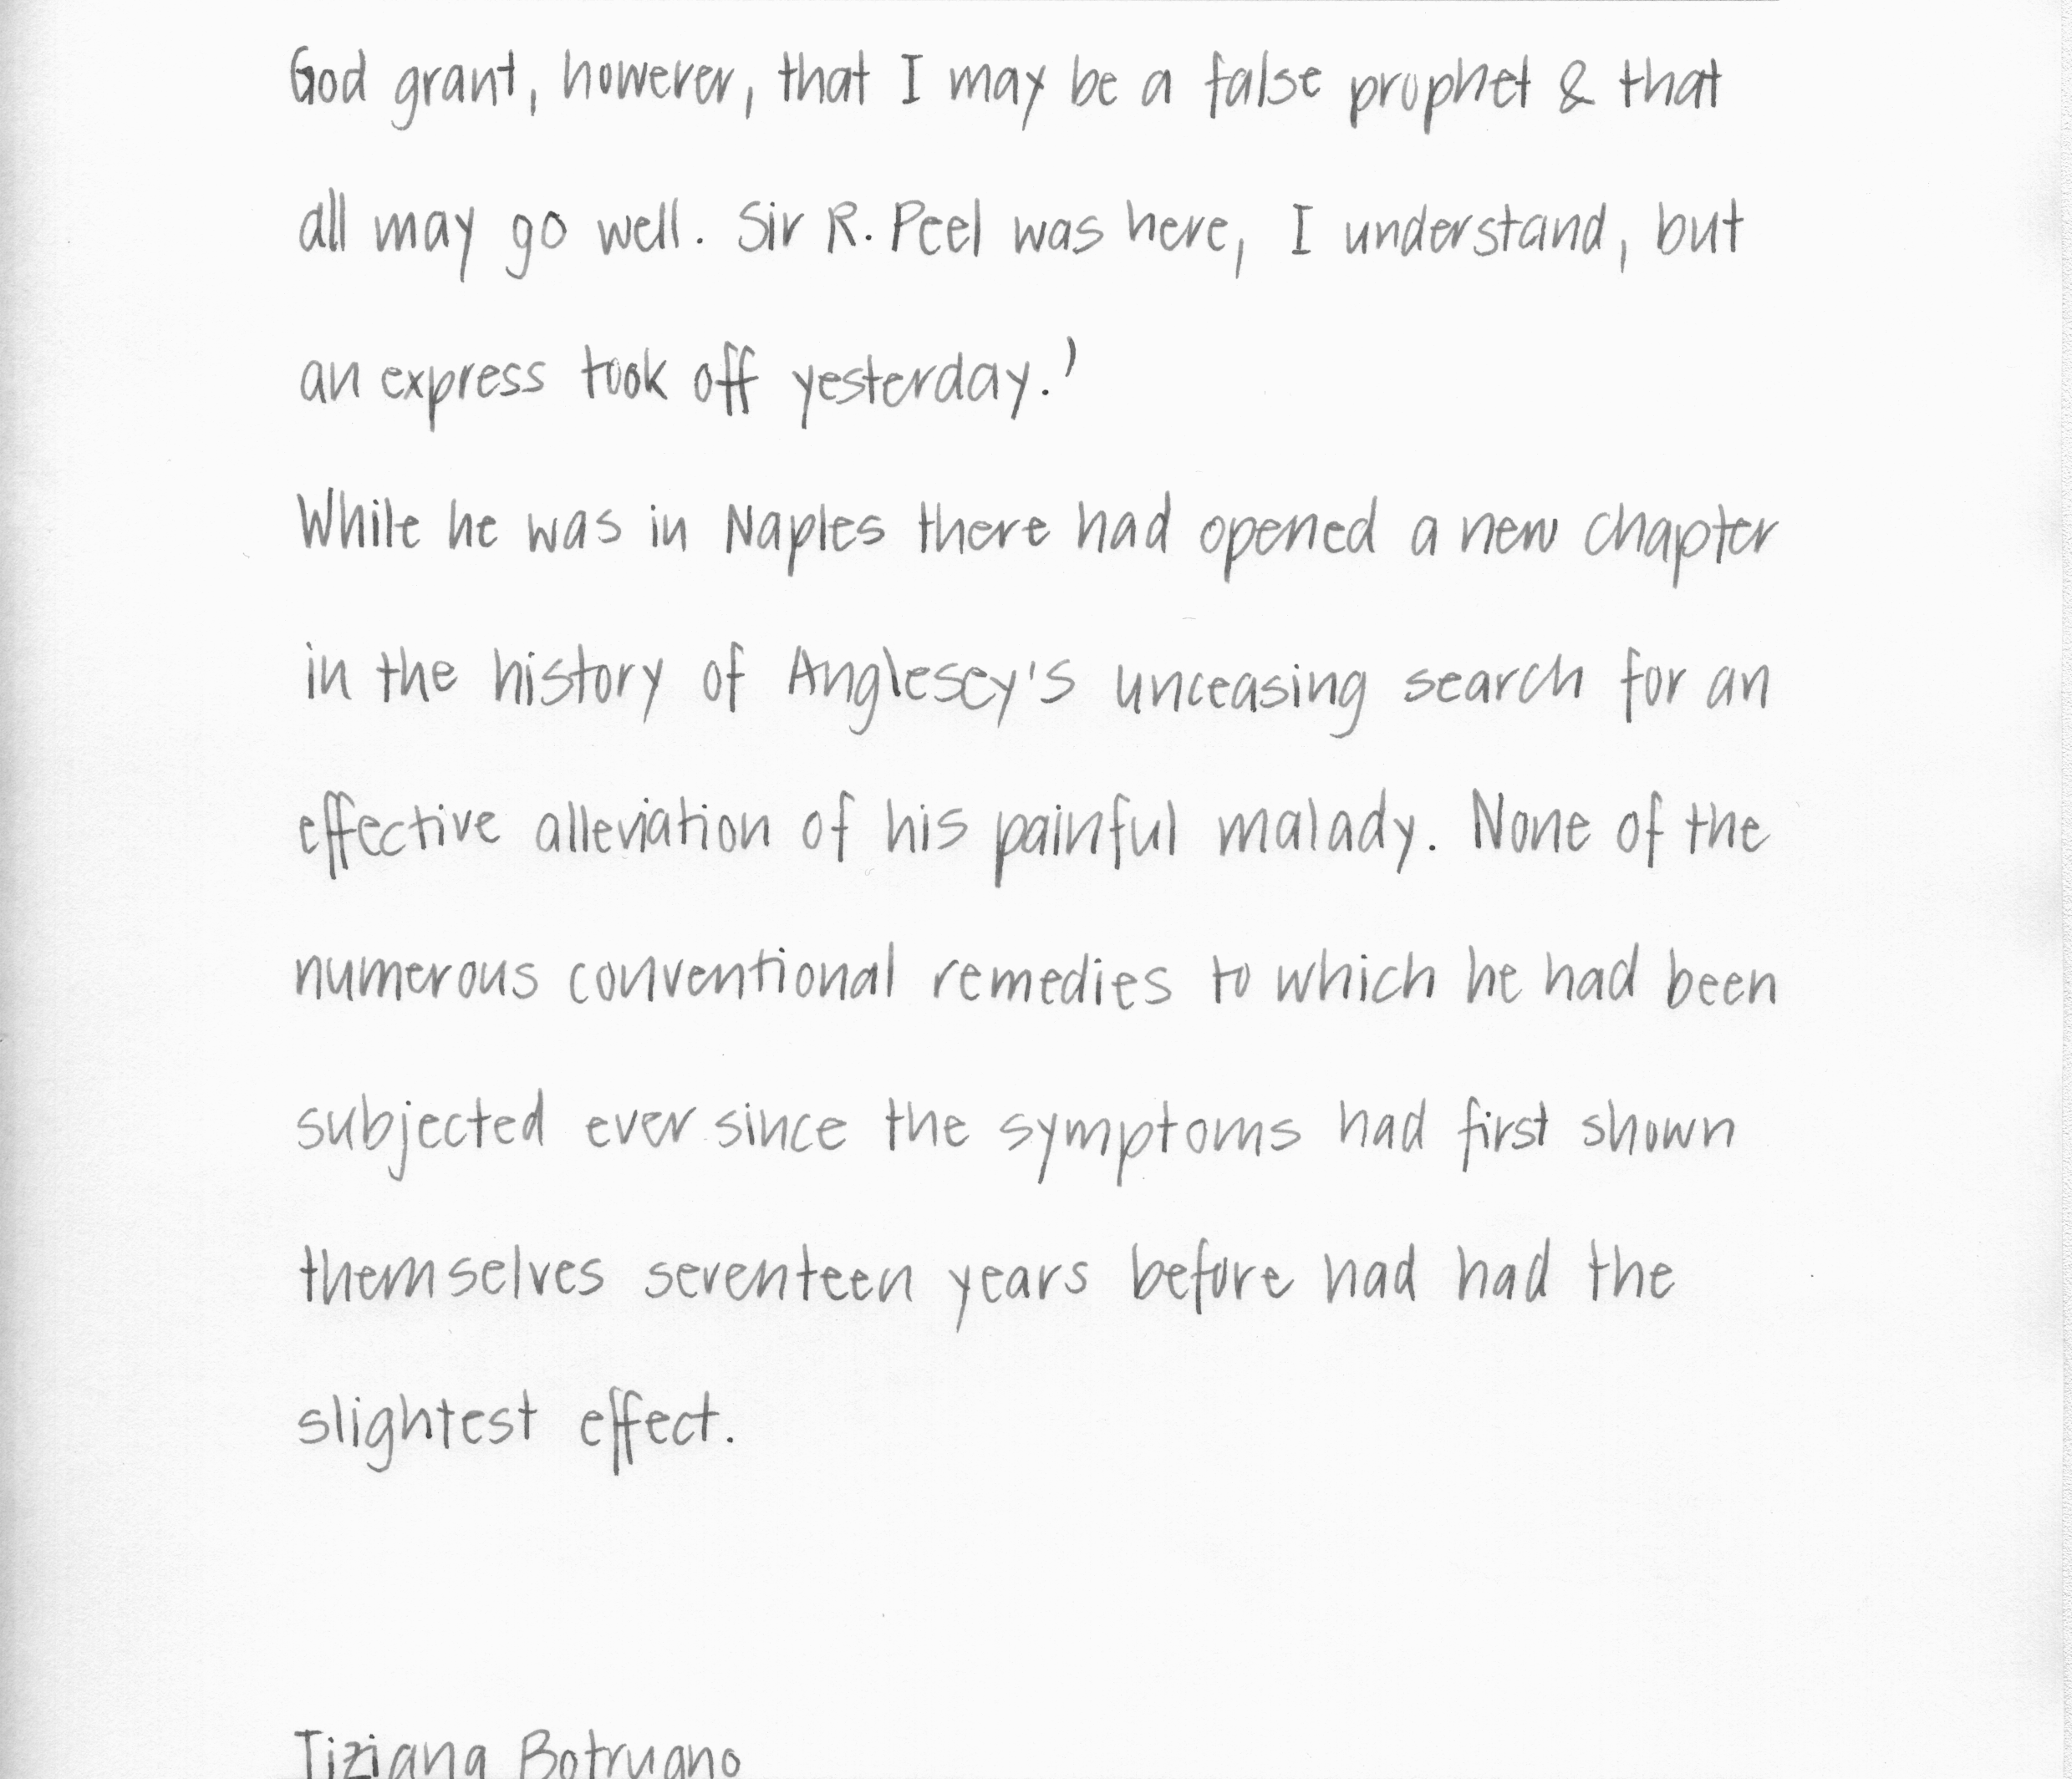 God grant, however, that I may be a false prophet & that
all may go well. Sir R. Peel was here, I understand, but
an express took off yesterday.'
While he was in Naples there had opened a new chapter
in the history of Anglesey's unceasing search for an
effective alleviation of his painful malady. None of the
numerous conventional remedies to which he had been
subjected ever since the symptoms had first shown
themselves seventeen years before had had the
slightest effect.
Tiziana Botrugno